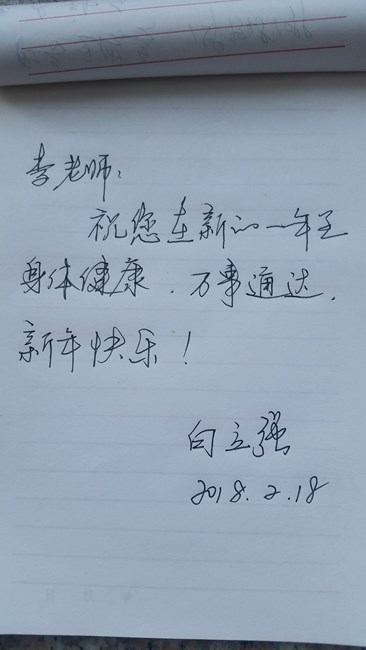 李老师：
祝您在新的一年里
身体健康，万事通达，
新年快乐！
向立强
2018.2.18